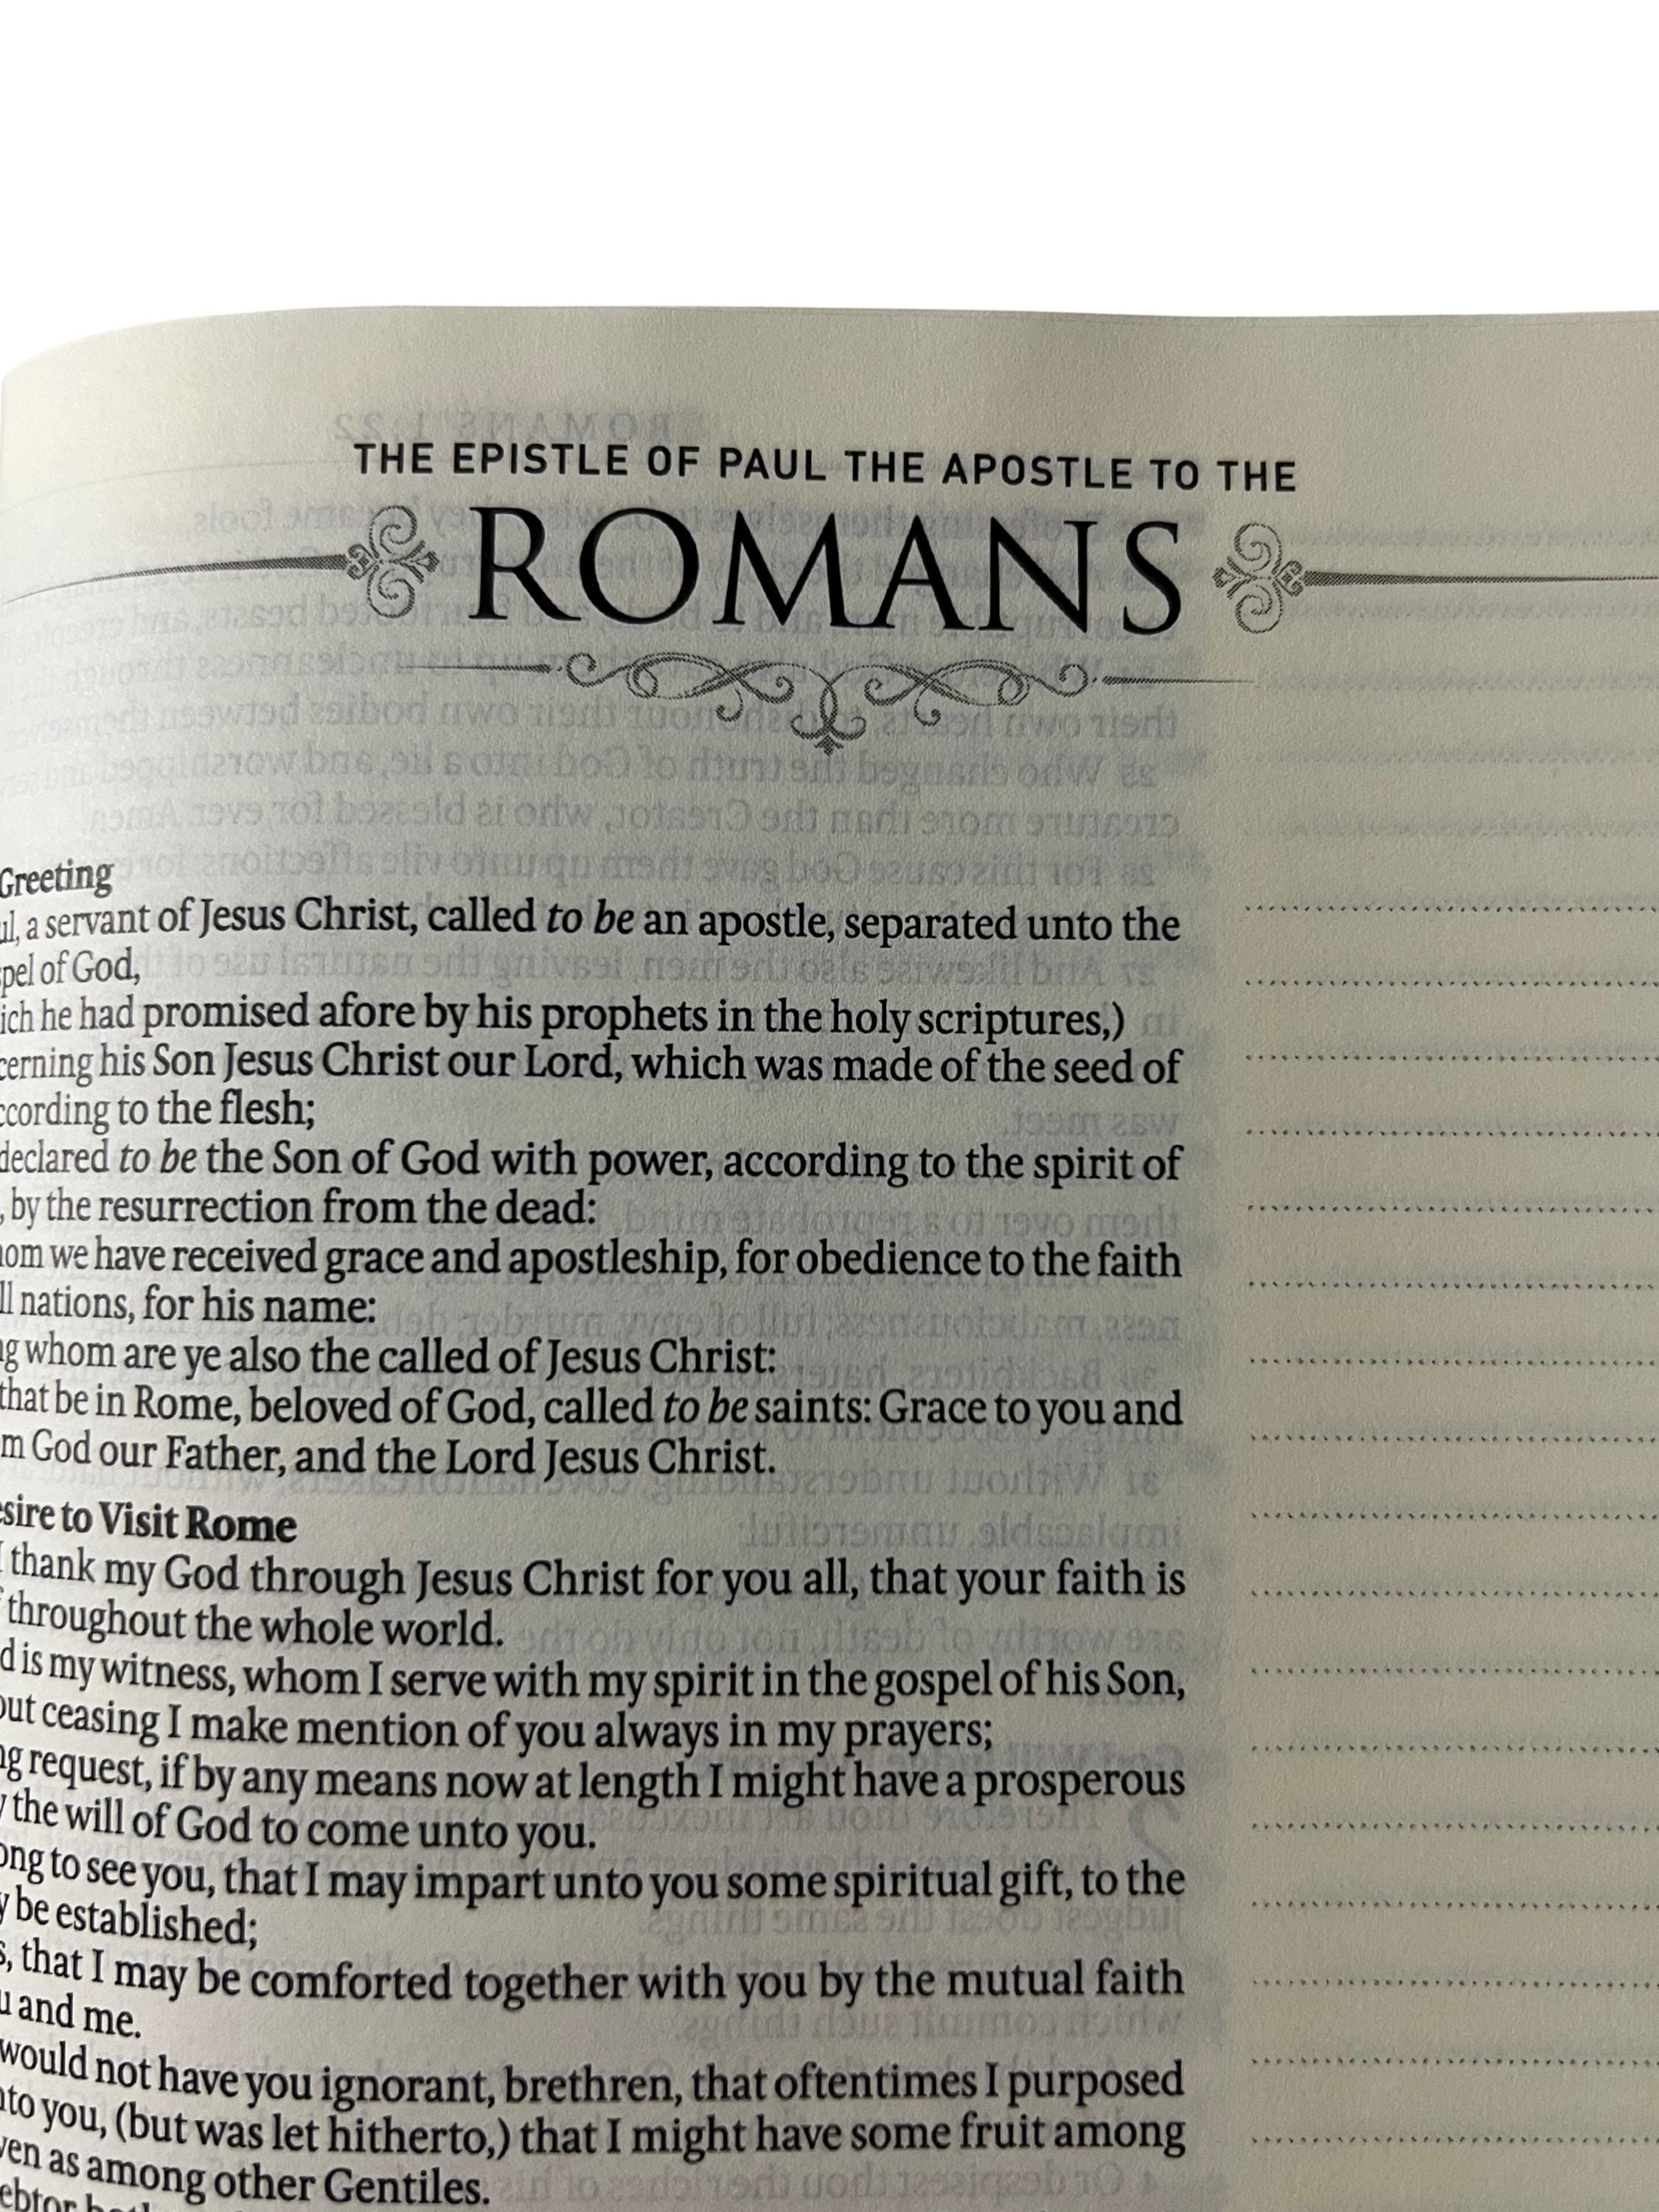 THE EPISTLE OF PAUL THE APOSTLE TO THE
ROMANS
Greeting
a servant of Jesus Christ, called to be an apostle, separated unto the
of God,
he had promised afore by his prophets in the holy scriptures,)
his Son Jesus Christ our Lord, which was made of the seed of
to the flesh;
declared to be the Son of God with power, according to the spirit of
by the resurrection from the dead:
we have received grace and apostleship, for obedience to the faith
nations, for his name:
whom are ye also the called of Jesus Christ:
that be in Rome, beloved of God, called to be saints: Grace to you and
God our Father, and the Lord Jesus Christ.
to Visit Rome
thank my God through Jesus Christ for you all, that your faith is
throughout the whole world.
is my witness, whom I serve with my spirit in the gospel of his Son,
ceasing I make mention of you always in my prayers;
request, if by any means now at length I might have a prosperous
the will of God to come unto you.
to see you, that I may impart unto you some spiritual gift, to the
be established;
that I may be comforted together with you by the mutual faith
and me.
would not have you ignorant, brethren, that oftentimes I purposed
to you, (but was let hitherto,) that I might have some fruit among
as among other Gentiles.